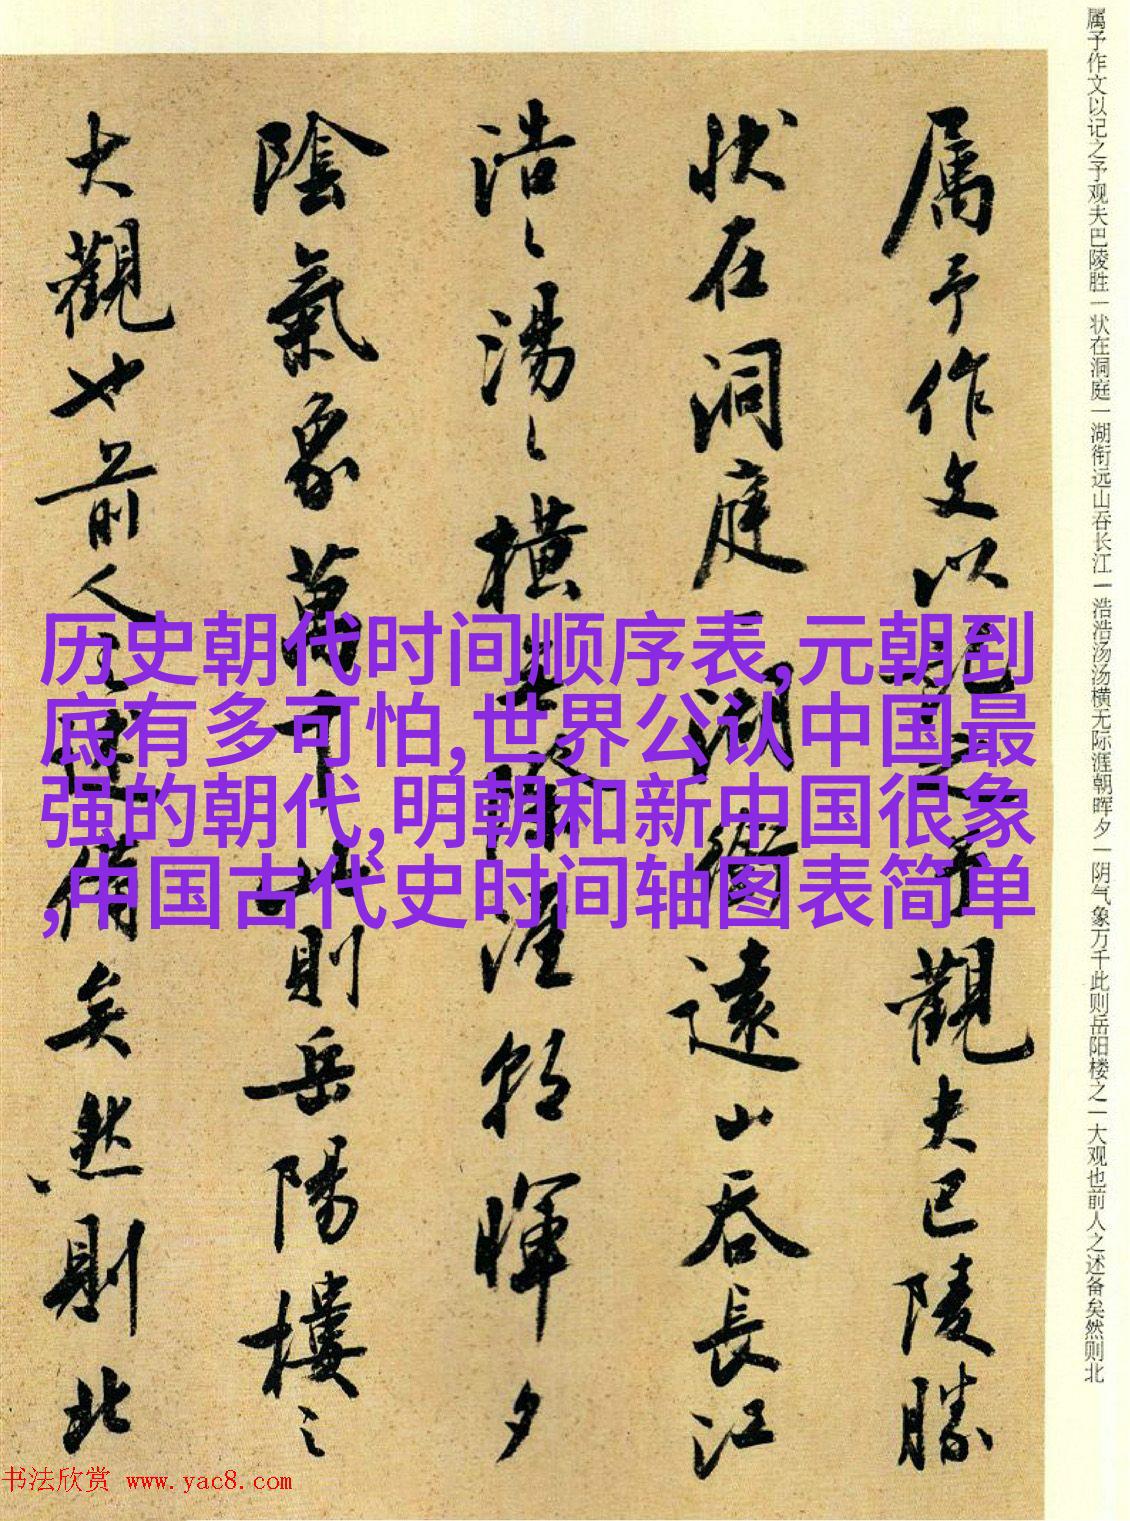 属予作文以记之予观夫巴陵胜一状在洞庭一湖衔远山吞长江一浩浩汤汤横无际涯朝晖夕一阴气象万千此则岳阳楼之一大观也前人之述备矣然则北
属予作文以記之予觀夫巴陵勝
状在洞庭一湖銜遠山吞長江
浩〻湯〻橫無際涯朝暉夕
陰氣象萬千此則岳陽樓之
大觀也前人之述備矣然則北
历史朝代时间顺序表,元朝到
底有多可怕,世界公认中国最
强的朝代,明朝和新中国很象
,中国古代史时间轴图表简单
书法欣赏 www.yac8.com